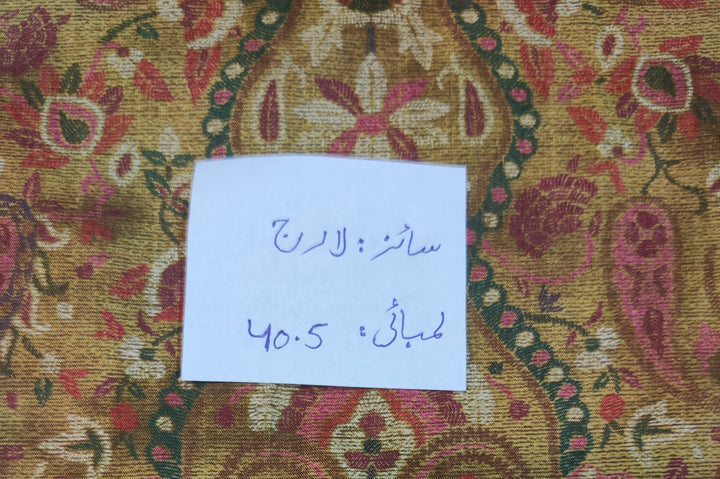 سائز: لارج
لمبائی: 40.5